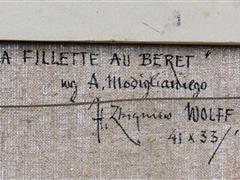 A FILLETTE AU BERET"
wg A. Modiglianiego
Zbigniew WOLFF
41 x 33